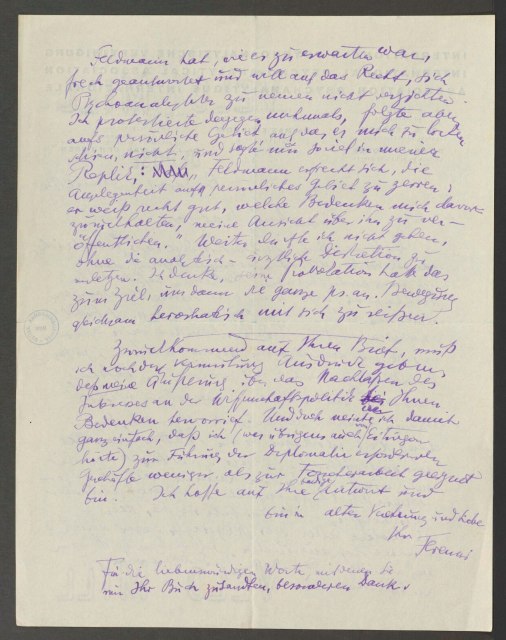 Feldmann hat, wie es zu erwarten war,
frech geantwortet und will auf das Recht, sich
Psychoanalytiker zu nennen nicht verzichten.
Ich protestierte dagegen nochmals, folgte aber
aufs persönliche Gebiet auf das er mich zu locken
schien, nicht, und sagte nur soviel in meiner
Replik: „Feldmann erfrecht sich, die
Angelegenheit aufs persönliches Gebiet zu zerren;
er weiß recht gut, welche Bedenken mich davon
zurückhalten, meine Ansicht über ihn zu ver-
öffentlichen.“ Weiter durfte ich nicht gehen,
ohne die analytisch-ärztliche Diskretion zu
verletzen. Ich denke, seine Provokation hatte das
zum Ziel, um dann die ganze ps.an. Bewegung
gleichsam herostratisch mit sich zu reißen.
Zurückkommend auf Ihren Brief, muß
ich noch der Vermutung Ausdruck geben,
daß meine Äußerung über das Nachlassen des
Interesses an der Wissenschaftspolitik bei Ihnen
Bedenken hervorrief. Und doch meinte ich damit
ganz einfach, daß ich (was übrigens auch Eitingon
hörte) zur Führung der Diplomatie erfordernden
Geschäfte weniger, als zur geeignet
bin. Ich hoffe auf Ihre Antwort und
bin in alter Verehrung und Liebe
Ihr Ferenczi
Für die liebenswürdigen Worte mit denen Sie
mir Ihr Buch zusandten, besonderen Dank.